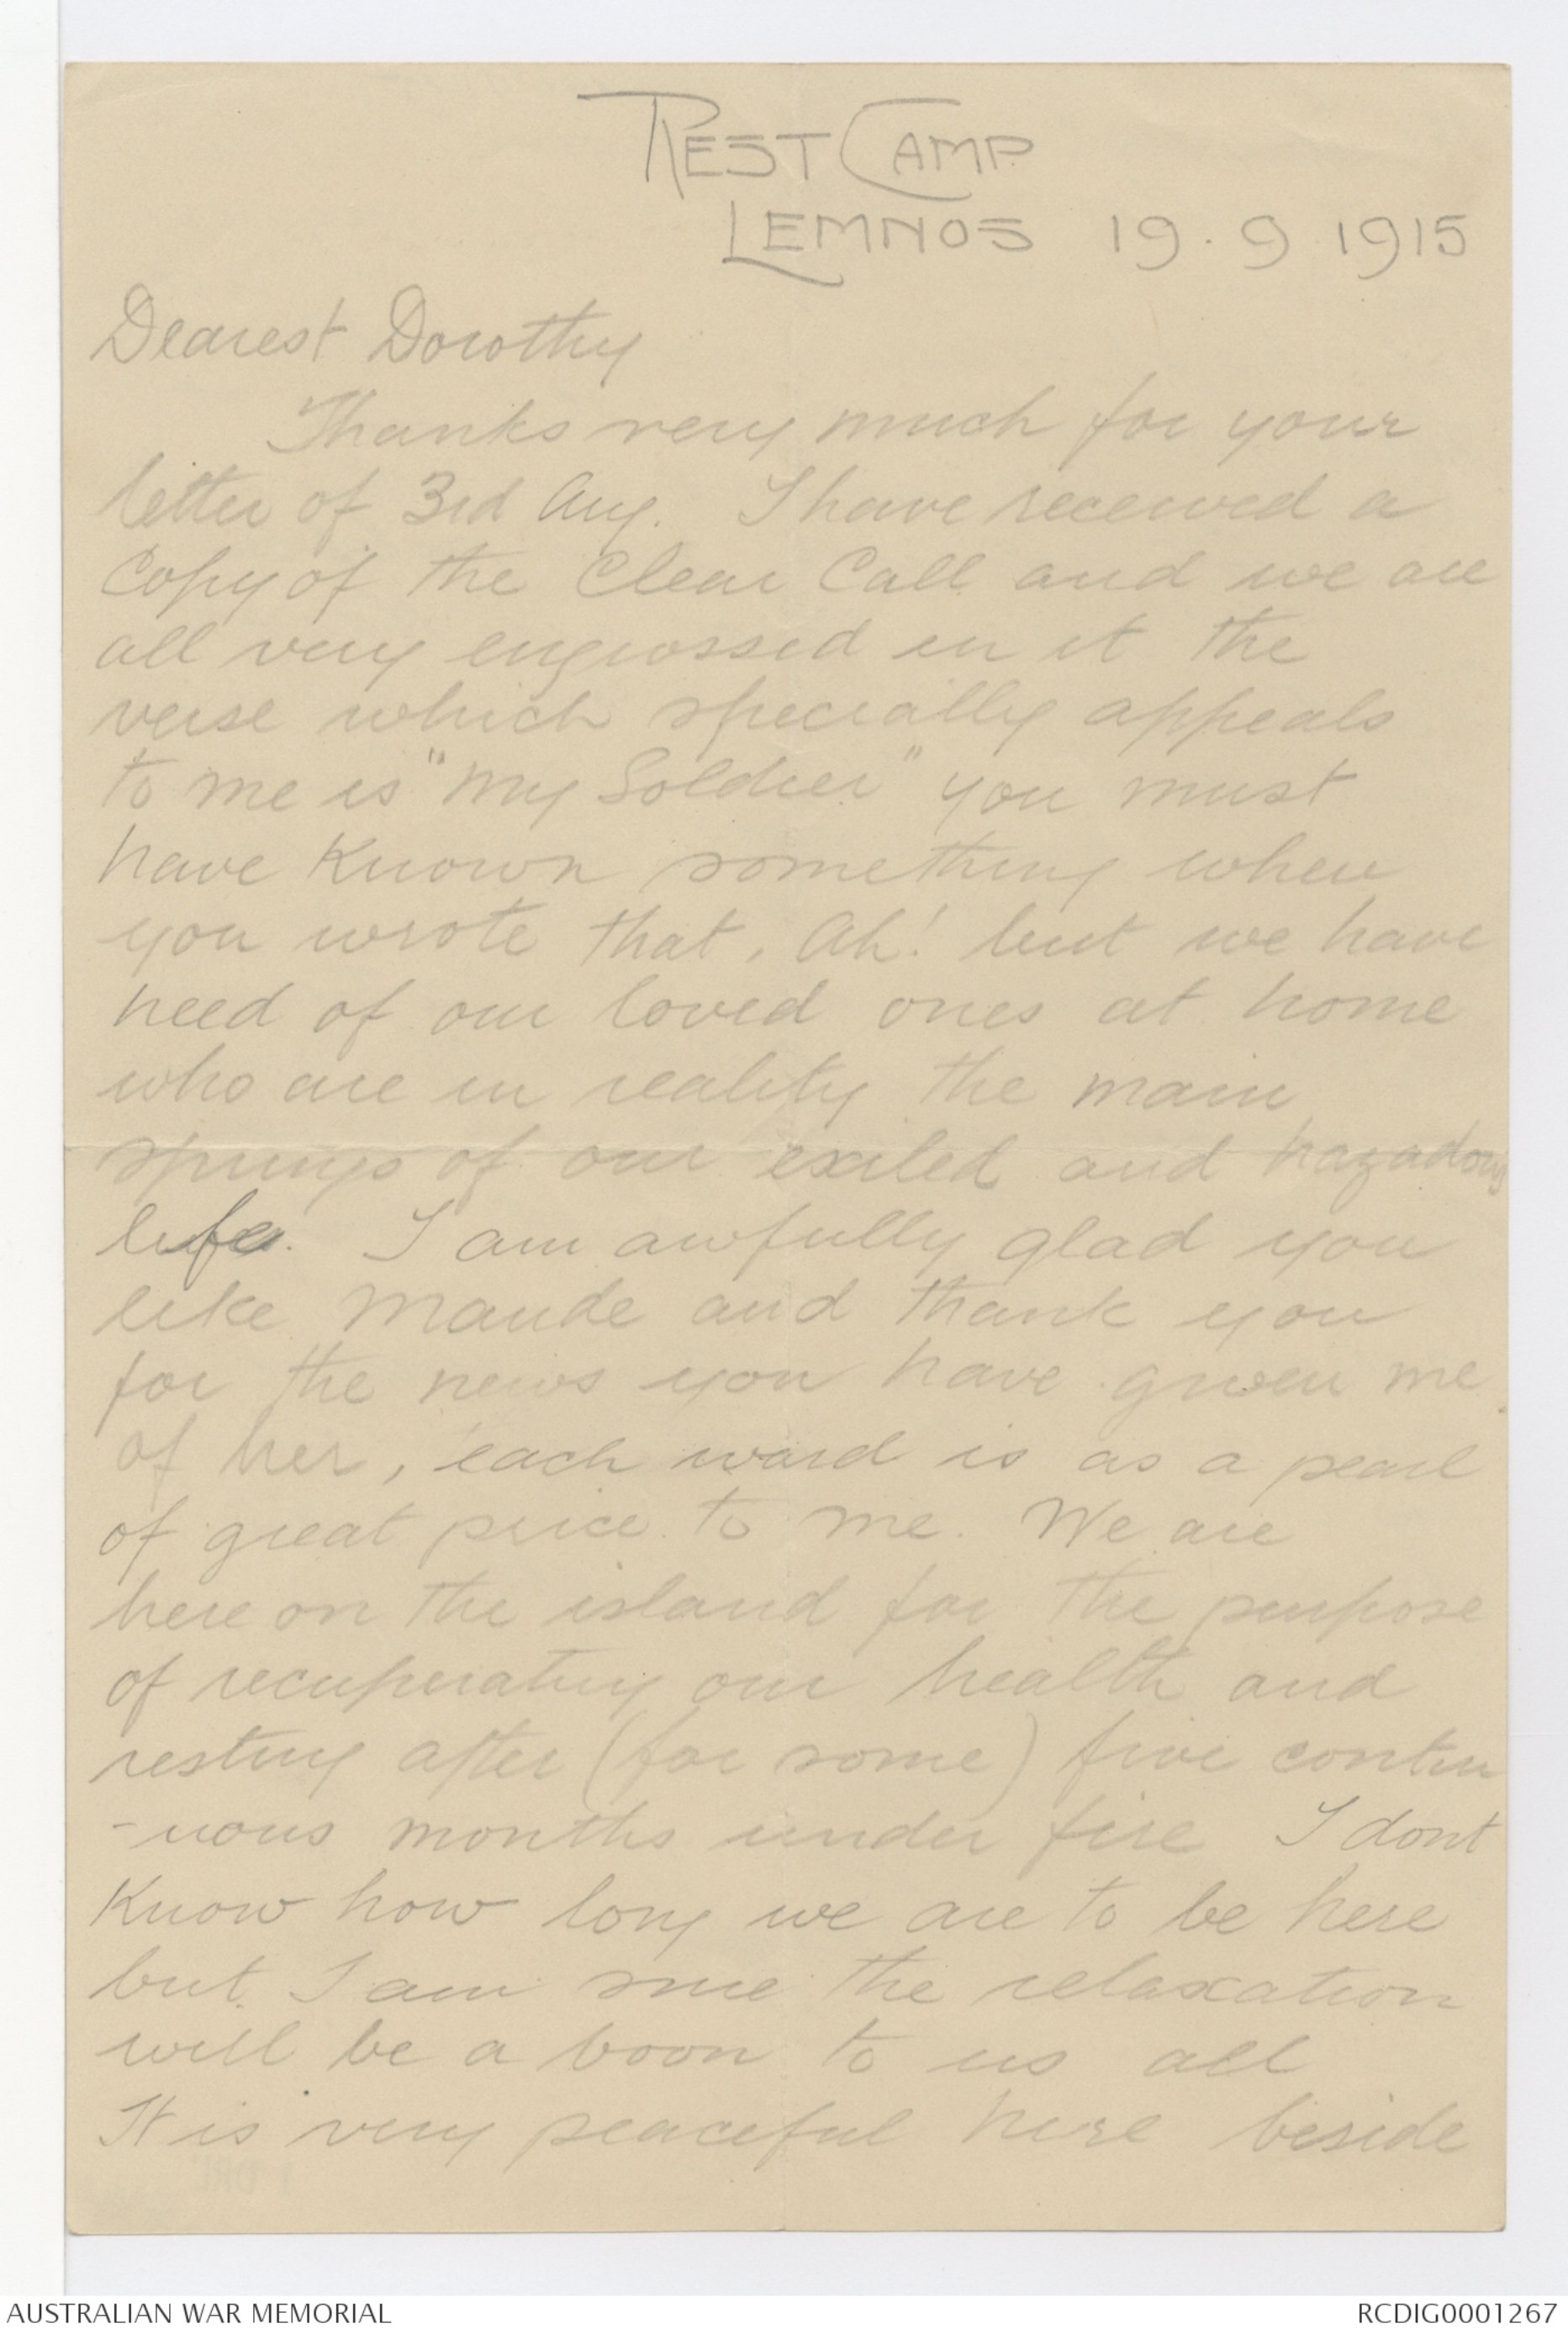 REST CAMP
LEMNOS 19.9.1915
Dearest Dorothy
Thanks very much for your
letter of 3rd Aug. I have received a
Copy of the Clear Call and we are
all very engrossed in it the
verse which specially appeals
to me is "My Soldier" you must
have known something when
you wrote that. Ah! but we have
need of our loved ones at home
who are in reality the main
springs of our exiled and hazadous
life. I am awfully glad you
like Maude and thank you
for the news you have given me
of her, each word is as a pearl
of great price to me. We are
here on the island for the purpose
of recuperating our health and
resting after (for some) five contin
-uous months under fire I dont
Know how long we are to be here
but I am sure the relaxation
will be a boon to us all
It is very peaceful here beside
AUSTRALIAN WAR MEMORIAL
RCDIG0001267